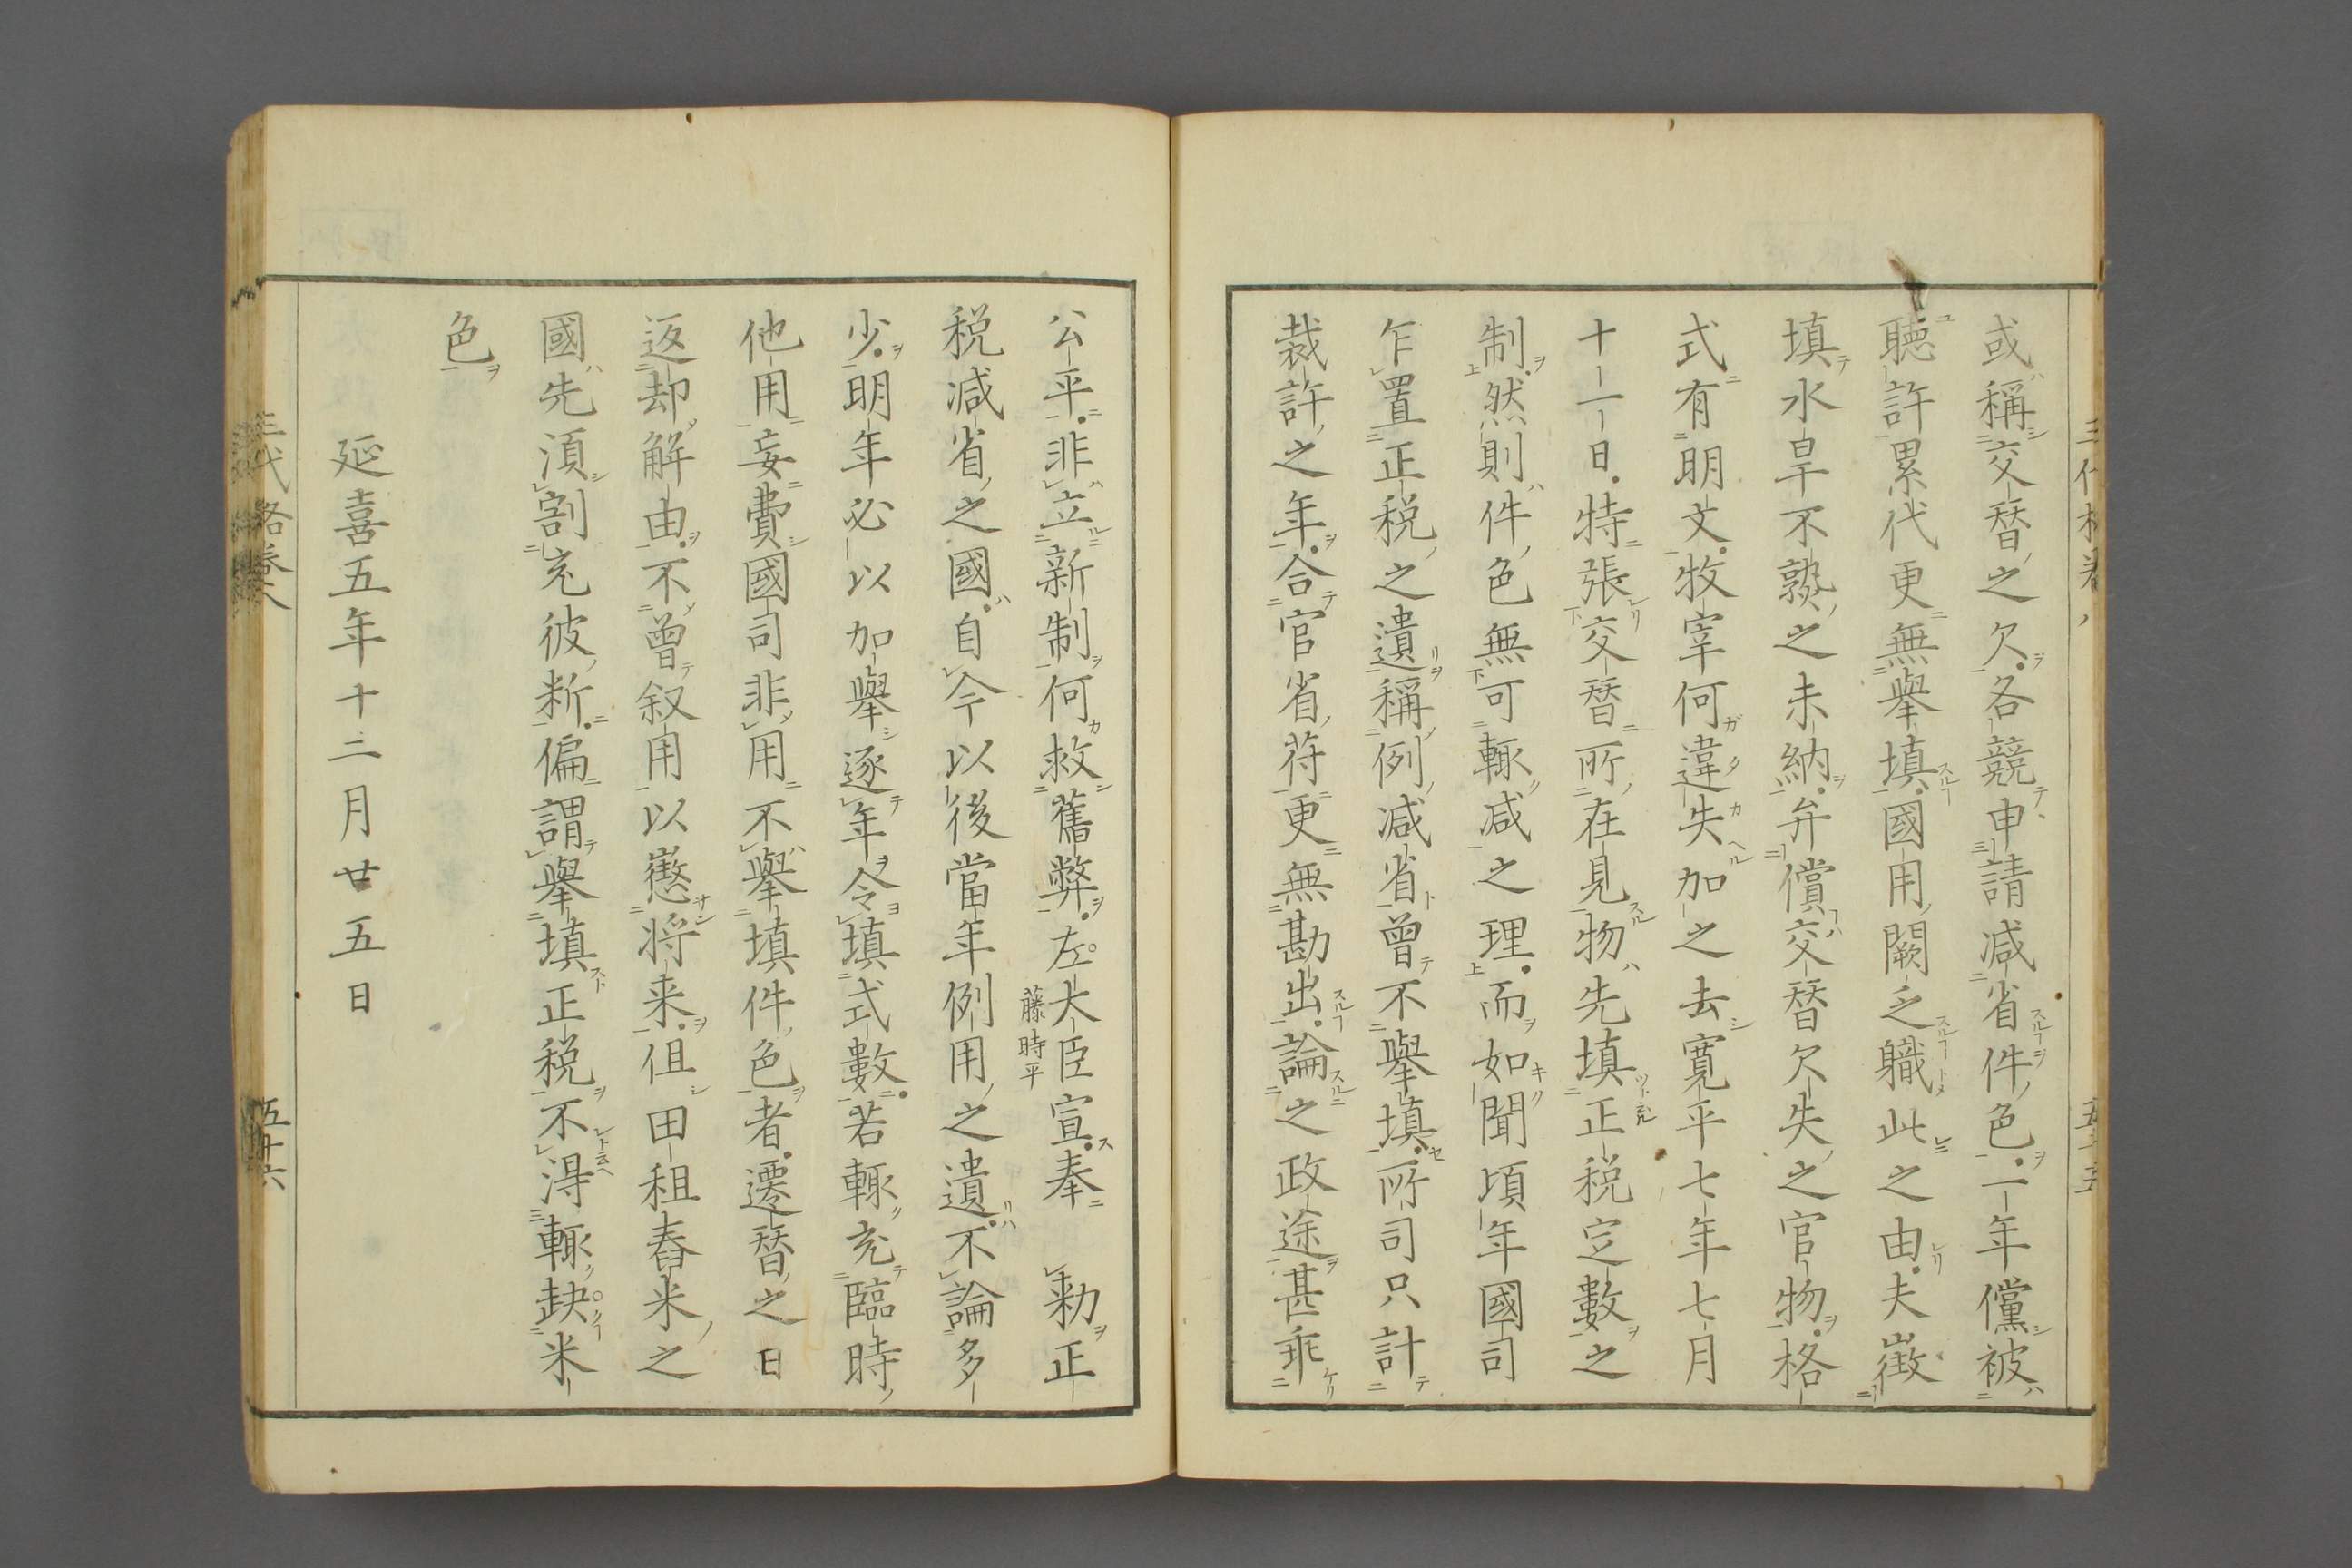 或稱交替之欠各競申請减省件色一年儻被
聴許累代更無擧填國用闕乏職此之由夫徴
填水旱不熟之未納弁償交替欠失之官物格
式有明文牧宰何違失加之去寛平七年七月
十一日特張交替所在見物先填正税定數之
制然則件色無可輙减之理而如聞頃年國司
乍置正税之遺稱例减省曽不擧填所司只計
裁許之年合官省符更無勘出論之政途甚乖
公平非立新制何救舊弊左大臣宣奉　勑正
藤時平
税减省之國自今以後當年例用之遺不論多
少明年必以加擧逐年令填式數若輙充臨時
他用妄費國司非用不擧填件色者遷替之日
返却解由不曽叙用以懲将来但田租舂米之
國先湏割充彼䉼偏謂擧填正税不得輙缺米
色
延喜五年十二月廿五日
三代格巻八
五十六